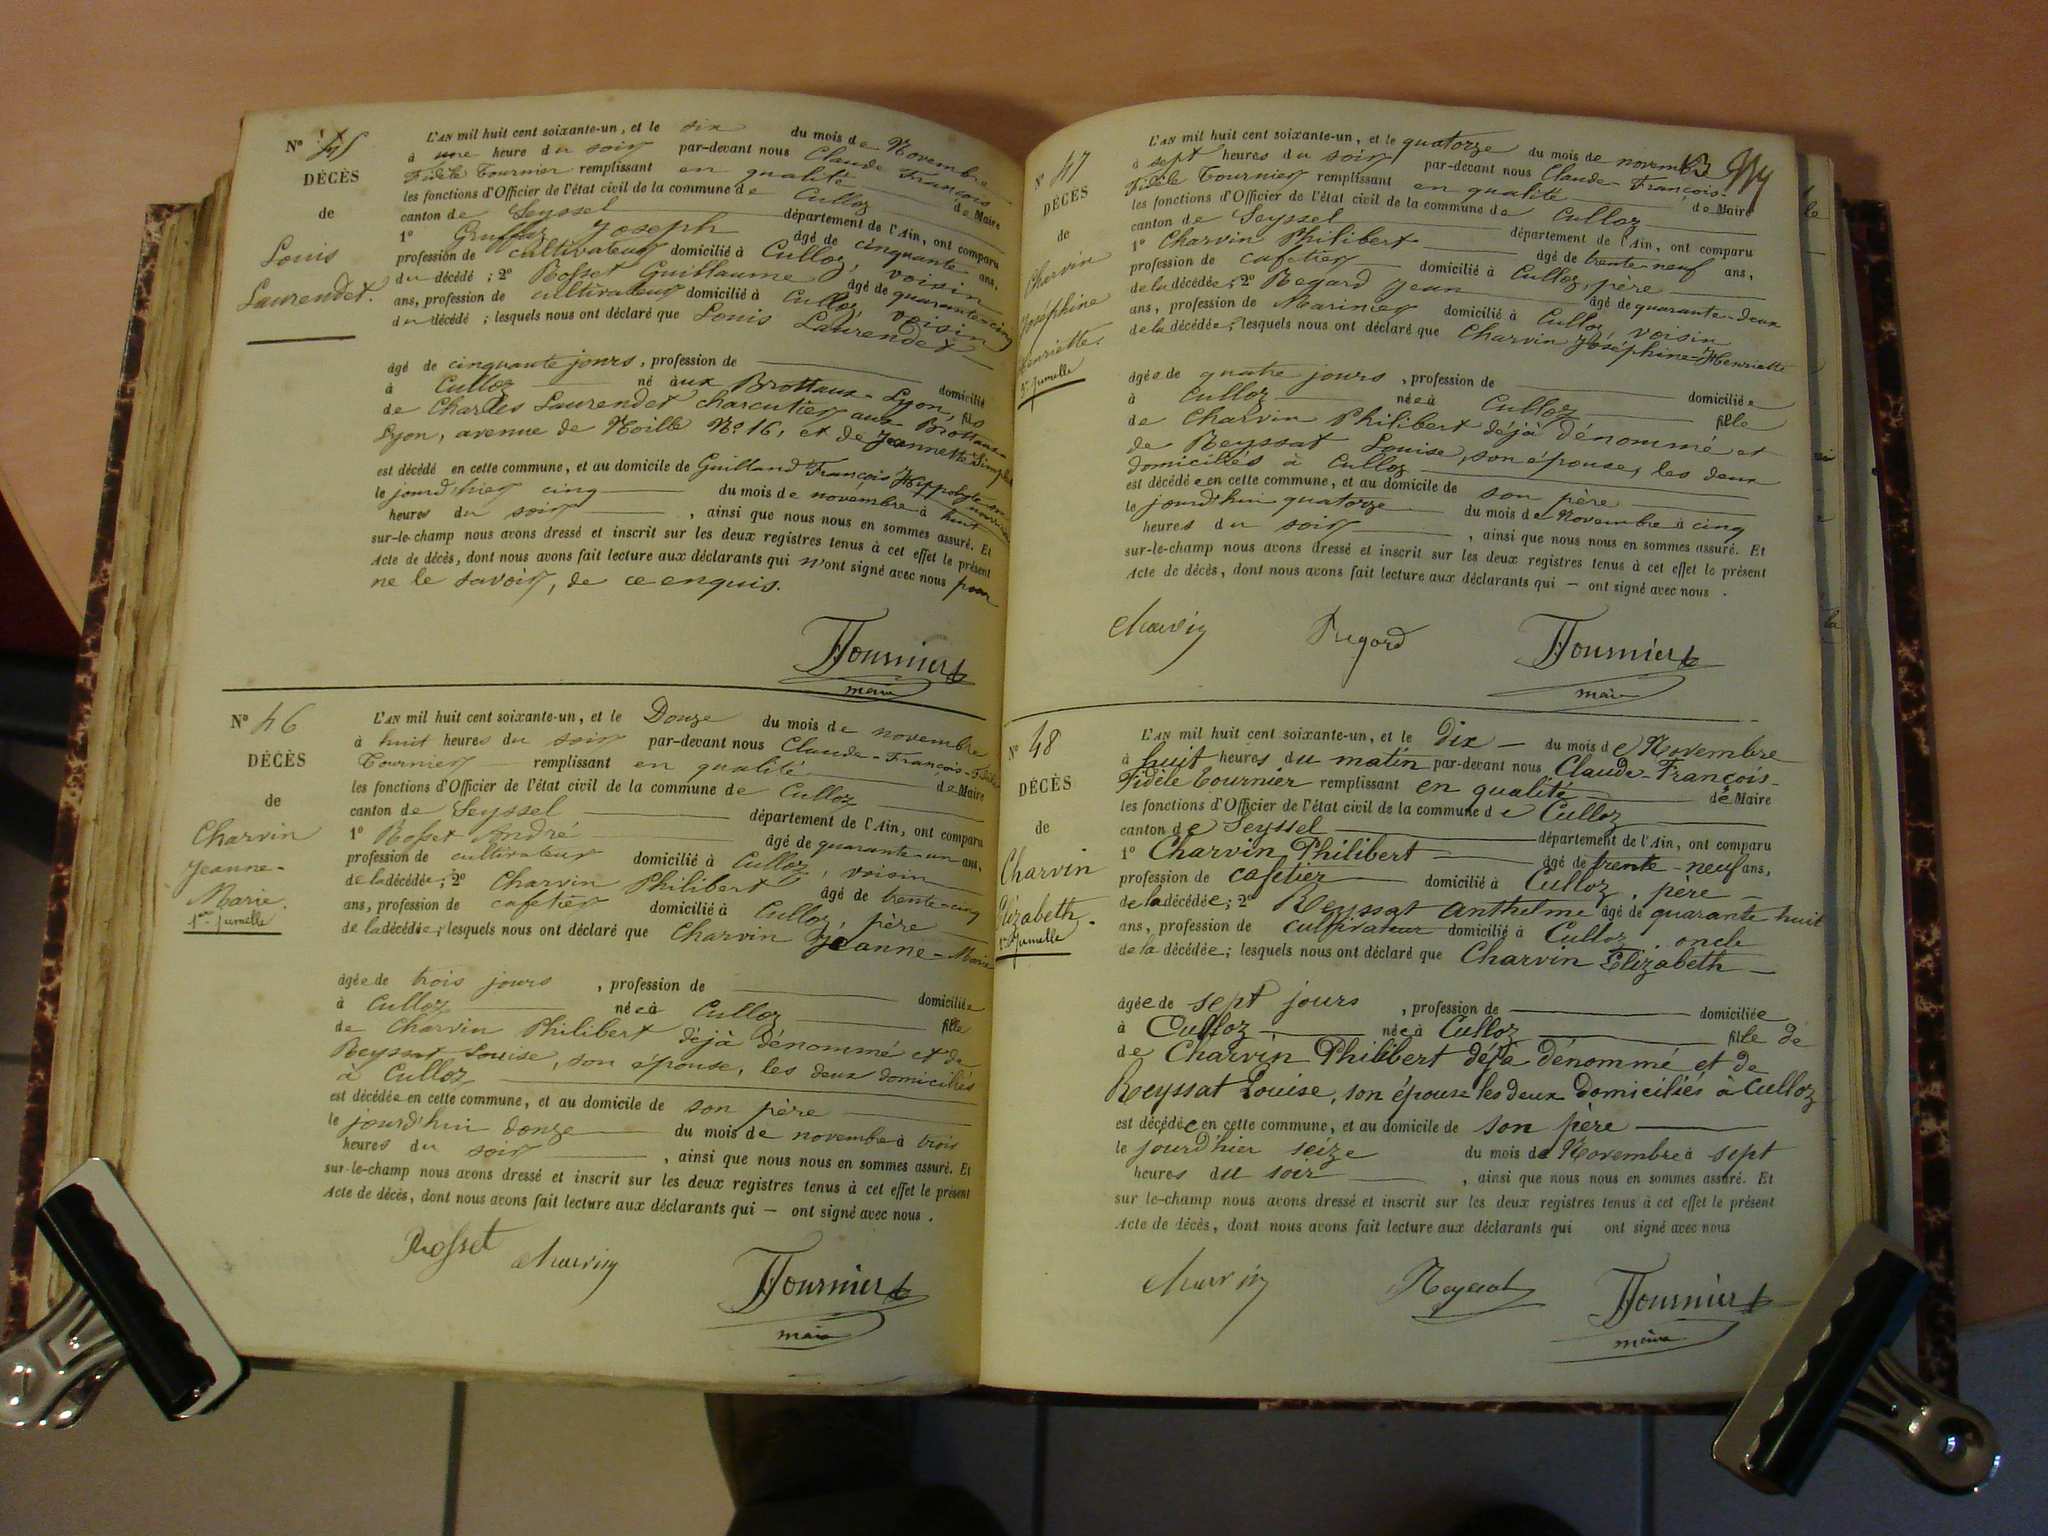 Nº 45
DÉCÈS
de
Louis
Laurendet.
L'AN mil huit cent soixante-un, et le six du mois de Novembre
à une heure du soir par-devant nous Claude François
Fidèle Tournier remplissant en qualité de Maire
les fonctions d'Officier de l'état civil de la commune de Culloz
canton de Seyssel département de l'Ain, ont comparu
1º Joseph âgé de cinquante ans,
profession de cultivateur domicilié à Culloz, voisin
du décédé ; 2º Rosset Guillaume âgé de quarante-cinq
ans, profession de cultivateur domicilié à Culloz, voisin
du décédé ; lesquels nous ont déclaré que Louis Laurendet
âgé de cinquante jours, profession de domicilié
à Culloz né aux Brottaux-Lyon, fils
de Charles Laurendet charcutier aux Brottaux-
Lyon, avenue de Noille Nº 16, et de Jeannette
est décédé en cette commune, et au domicile de Guilland François Hippolyte
le jourd'hier cinq du mois de novembre à huit
heures du soir , ainsi que nous nous en sommes assuré. Et
sur-le-champ nous avons dressé et inscrit sur les deux registres tenus à cet effet le présent
Acte de décès, dont nous avons fait lecture aux déclarants qui n'ont signé avec nous pour
ne le savoir, de ce enquis.
Tournier
maire
Nº 46
DÉCÈS
de
Charvin
Jeanne-
Marie.
1ère jumelle
L'AN mil huit cent soixante-un, et le Douze du mois de novembre
à huit heures du soir par-devant nous Claude-François-Fidèle
Tournier remplissant en qualité de Maire
les fonctions d'Officier de l'état civil de la commune de Culloz
canton de Seyssel département de l'Ain, ont comparu
1º Rosset André âgé de quarante-un ans,
profession de cultivateur domicilié à Culloz, voisin
de la décédée ; 2º Charvin Philibert âgé de trente-cinq
ans, profession de cafetier domicilié à Culloz, père
de la décédée ; lesquels nous ont déclaré que Charvin Jeanne-Marie
âgée de trois jours , profession de domiciliée
à Culloz née à Culloz fille
de Charvin Philibert déjà dénommé et de
Reyssat Louise, son épouse, les deux domiciliés
à Culloz
est décédée en cette commune, et au domicile de son père
le jourd'hui douze du mois de novembre à trois
heures du soir , ainsi que nous nous en sommes assuré. Et
sur-le-champ nous avons dressé et inscrit sur les deux registres tenus à cet effet le présent
Acte de décès, dont nous avons fait lecture aux déclarants qui – ont signé avec nous .
Rosset Charvin Tournier
maire
Nº 47
DÉCÈS
de
Charvin
Joséphine
Henriette.
jumelle
L'AN mil huit cent soixante-un, et le quatorze du mois de novembre
à sept heures du soir par-devant nous Claude-François-
Fidèle Tournier remplissant en qualité de Maire
les fonctions d'Officier de l'état civil de la commune de Culloz
canton de Seyssel département de l'Ain, ont comparu
1º Charvin Philibert âgé de trente-neuf ans,
profession de cafetier domicilié à Culloz, père
de la décédée ; 2º Regard Jean âgé de quarante-deux
ans, profession de Marinier domicilié à Culloz, voisin
de la décédée ; lesquels nous ont déclaré que Charvin Joséphine-Henriette
âgée de quatre jours , profession de domiciliée
à Culloz née à Culloz fille
de Charvin Philibert déjà dénommé et
de Reyssat Louise, son épouse, les deux
domiciliés à Culloz
est décédée en cette commune, et au domicile de son père
le jourd'hui quatorze du mois de Novembre à cinq
heures du soir , ainsi que nous nous en sommes assuré. Et
sur-le-champ nous avons dressé et inscrit sur les deux registres tenus à cet effet le présent
Acte de décès, dont nous avons fait lecture aux déclarants qui – ont signé avec nous .
Charvin Regard Tournier
maire
Nº 48
DÉCÈS
de
Charvin
Elizabeth.
jumelle
L'AN mil huit cent soixante-un, et le dix – du mois de Novembre
à huit heures du matin par-devant nous Claude-François-
Fidèle Tournier remplissant en qualité de Maire
les fonctions d'Officier de l'état civil de la commune de Culloz
canton de Seyssel département de l'Ain, ont comparu
1º Charvin Philibert âgé de trente-neuf ans,
profession de cafetier domicilié à Culloz, père
de la décédée ; 2º Reyssat Anthelme âgé de quarante huit
ans, profession de cultivateur domicilié à Culloz, oncle
de la décédée ; lesquels nous ont déclaré que Charvin Elizabeth
âgée de sept jours , profession de domiciliée
à Culloz née à Culloz fille de
de Charvin Philibert déjà dénommé et de
Reyssat Louise, son épouse les deux domiciliés à Culloz
est décédée en cette commune, et au domicile de son père
le jourd'hier seize du mois de Novembre à sept
heures du soir , ainsi que nous nous en sommes assuré. Et
sur le-champ nous avons dressé et inscrit sur les deux registres tenus à cet effet le présent
Acte de décès, dont nous avons fait lecture aux déclarants qui ont signé avec nous
Charvin Reyssat Tournier
maire